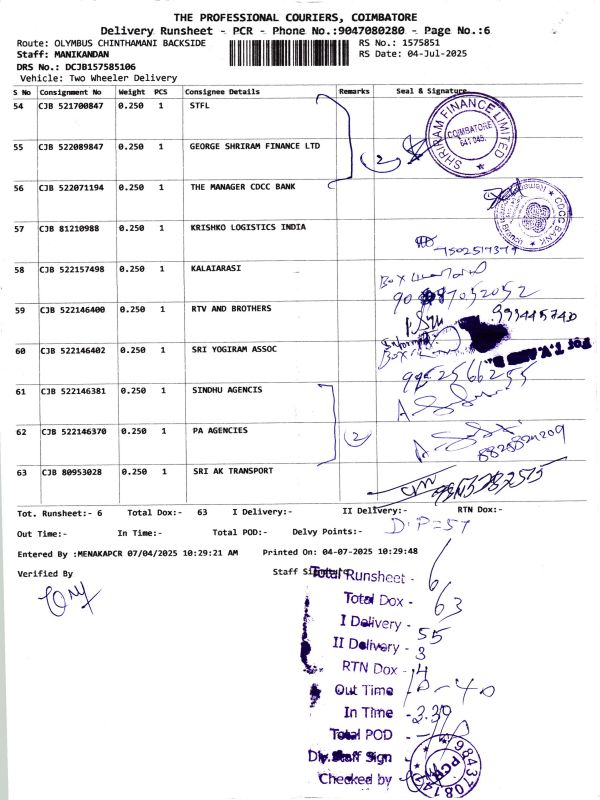 THE PROFESSIONAL COURIERS, COIMBATORE
Delivery Runsheet - PCR - Phone No.:9047080280 - Page No.:6
Route: OLYMBUS CHINTHAMANI BACKSIDE RS No.: 1575851
Staff: MANIKANDAN RS Date: 04-Jul-2025
DRS No.: DCJB157585106
Vehicle: Two Wheeler Delivery
S No Consignment No Weight PCS Consignee Details Remarks Seal & Signature
54 CJB 521700847 0.250 1 STFL
SHRIRAM FINANCE LIMITED
COIMBATORE
641 045.
55 CJB 522089847 0.250 1 GEORGE SHRIRAM FINANCE LTD
2
56 CJB 522071194 0.250 1 THE MANAGER CDCC BANK
CDCC BANK
57 CJB 81210988 0.250 1 KRISHKO LOGISTICS INDIA
58 CJB 522157498 0.250 1 KALAIARASI
59 CJB 522146400 0.250 1 RTV AND BROTHERS
60 CJB 522146402 0.250 1 SRI YOGIRAM ASSOC
61 CJB 522146381 0.250 1 SINDHU AGENCIS
62 CJB 522146370 0.250 1 PA AGENCIES
2
63 CJB 80953028 0.250 1 SRI AK TRANSPORT
Tot. Runsheet:- 6 Total Dox:- 63 I Delivery:- II Delivery:- RTN Dox:-
D.P=57
Out Time:- In Time:- Total POD:- Delvy Points:-
Entered By :MENAKAPCR 07/04/2025 10:29:21 AM Printed On: 04-07-2025 10:29:48
Verified By Staff Signature
Total Runsheet - 6
Total Dox - 63
I Delivery - 55
II Delivery - 3
RTN Dox - 4
Out Time - 10-40
In Time - 3.39
Total POD -
Div.Staff Sign -
Checked by
PCR